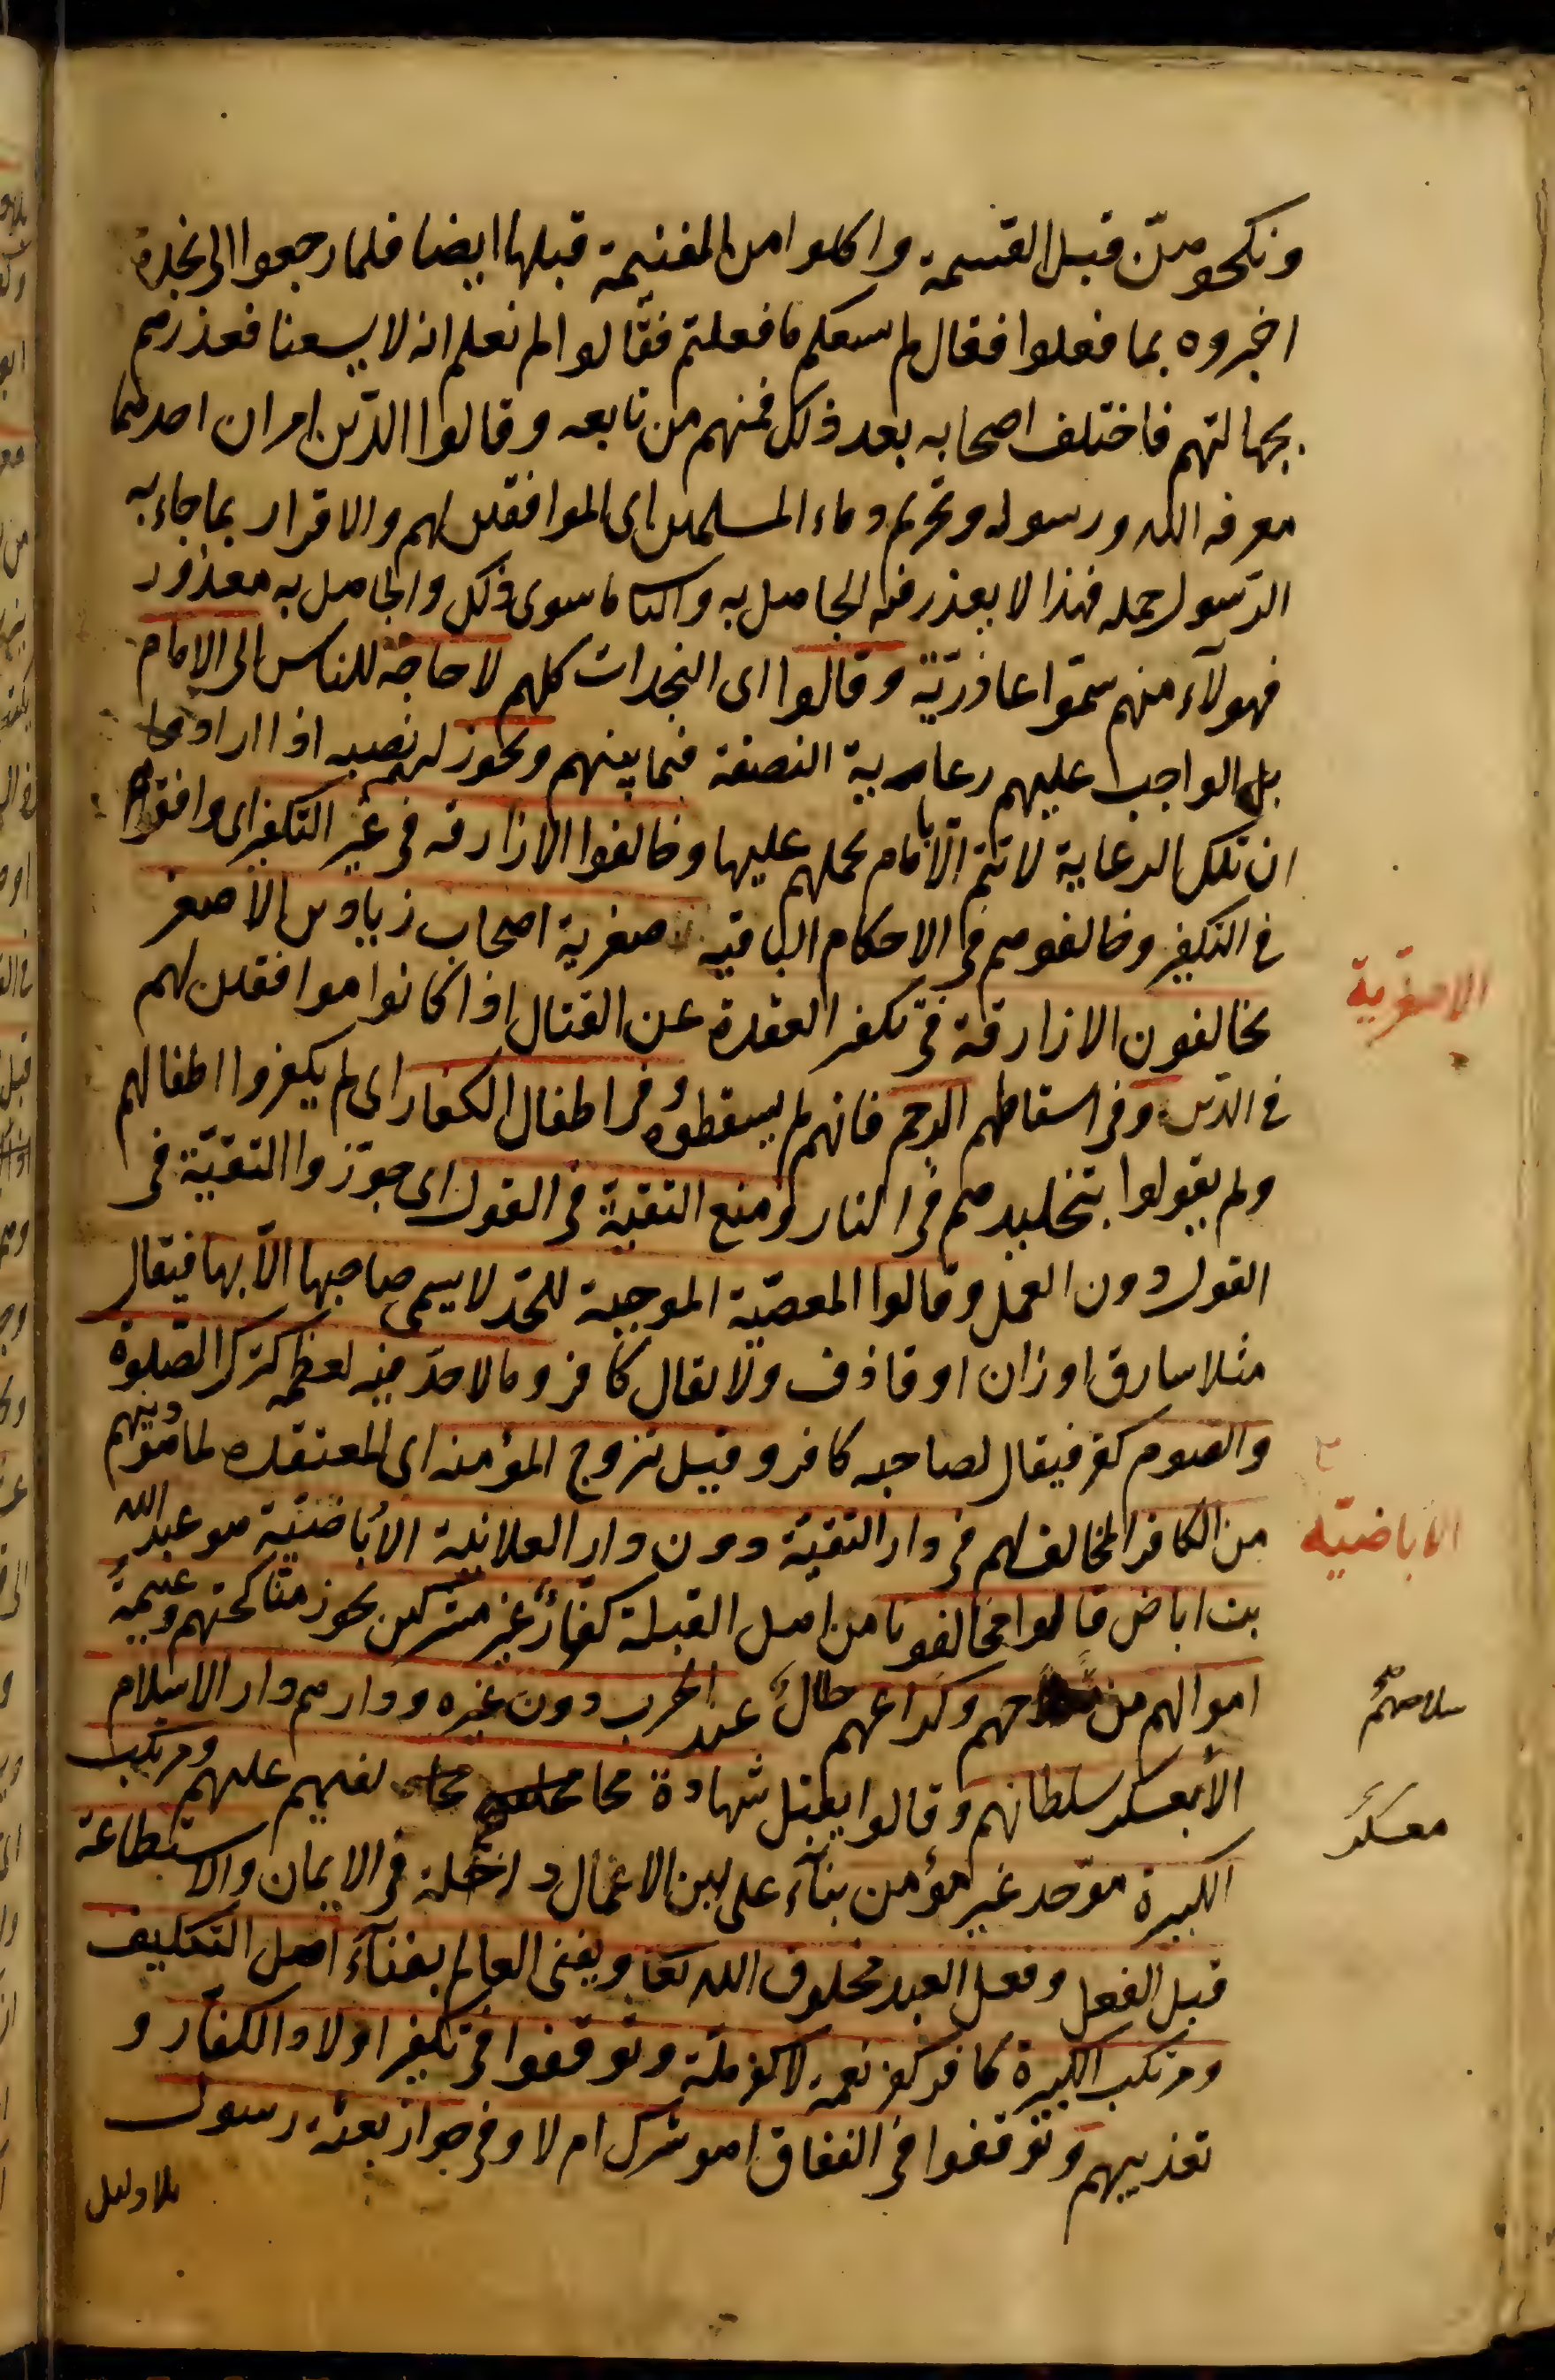 ونكحوهن قبل القسمة واكلوا من الغنيمة قبلها ايضا فلما رجعوا الى نجدة
اخبروه بما فعلوا فقال لم يسعكم ما فعلتم فقالوا لم نعلم انه لا يسعنا فعذرهم
بجهالتهم فاختلف اصحابه بعد ذلك فمنهم من تابعه وقالوا الدّين امران احدهما
معرفه الله ورسوله وتحريم دماء المسلمين اى الموافقين لهم والاقرار بما جاء به
الرّسول جمله فهذا لا يعذر فيه الجاهل به والثانى ما سوى ذلك والجاهل به معذور
فهولآء منهم سمّوا عاذريّة وقالوا اى النجدات كلهم لا حاجة للناس الى الامام
بل الواجب عليهم رعاية النصفة فيما بينهم ويجوز لهم نصبه اذا ارادوا
ان تلك الرعاية لا تتم الّا بامام يحملهم عليها وخالفوا الازارقه فى غير التكفير اى وافقوهم
فى التكفير وخالفوهم فى الاحكام الباقيه الاصفرية اصحاب زياد بن الأصفر
يخالفون الازارقة فى تكفير القعدة عن القتال اذا كانوا موافقين لهم
فى الدّين وفى اسقاطهم الرجم فانهم لم يسقطوه وفى اطفال الكفار اى لم يكفروا اطفالهم
ولم يقولوا بتخليدهم فى النار ومنع التقية فى القول اى جوّزوا التقيّة فى
القول دون العمل وقالوا المعصيّة الموجبة للحّد لا يسمى صاحبها الّا بها فيقال
مثلا سارق او زان او قاذف ولا يقال كافر وما لا حدّ فيه لعظمه كترك الصّلوة
والصوم كفر فيقال لصاحبه كافر وقيل تزوج المؤمنه اى المعتقده لما هو دينهم
من الكافر المخالف لهم فى دار التقيّة دون دار العلانية الأباضيّة هو عبد الله
بن اباض قالوا مخالفونا من اهل القبلة كفّار غير مشركين يجوز مناكحتهم وغنيمة
اموالهم من سلاحهم وكراعهم حلال عند الحرب دون غيره ودارهم دار الاسلام
الا معسكر سلطانهم وقالوا يقبل شهادة مخالفيهم عليهم ومرتكب
الكبيرة موّحد غير مؤمن بنآء على ان الاعمال داخلة فى الايمان والاستطاعة
قبل الفعل وفعل العبد مخلوق الله تعا ويفنى العالم بفنآء اهل التكليف
ومرتكب الكبيرة كافر كفر نعمة لا كفر ملّة وتوقّفوا فى تكفير اولاد الكفّار و
تعذيبهم وتوقفوا فى النفاق اهو شرك ام لا وفى جواز بعثة رسول
بلا دليل
الاصفرية
الاباضيّه
سلاحهم
معسكر